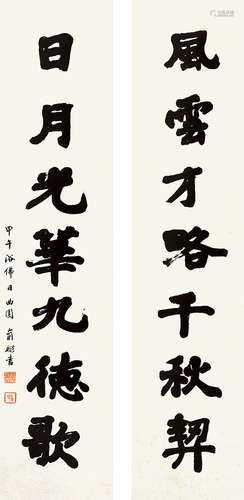 風雲才略千秋契
日月光華九德歌
甲午浴佛日曲園俞樾書